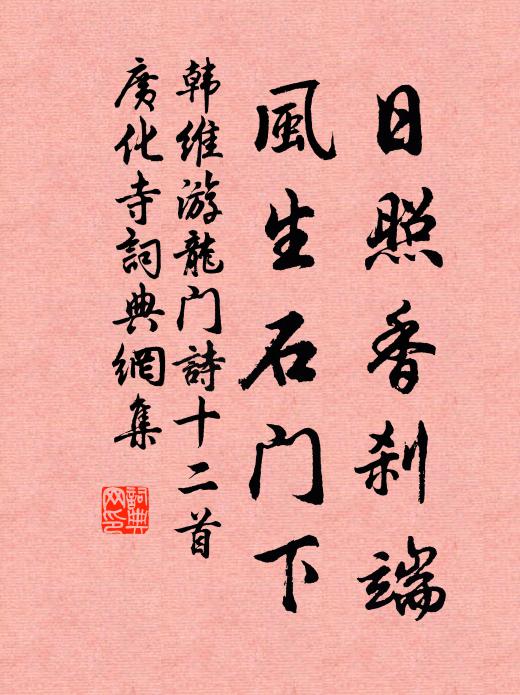 日照香刹端
風生石门下
韩維游龍门詩十二首
廣化寺詞典網集
詞典
网印